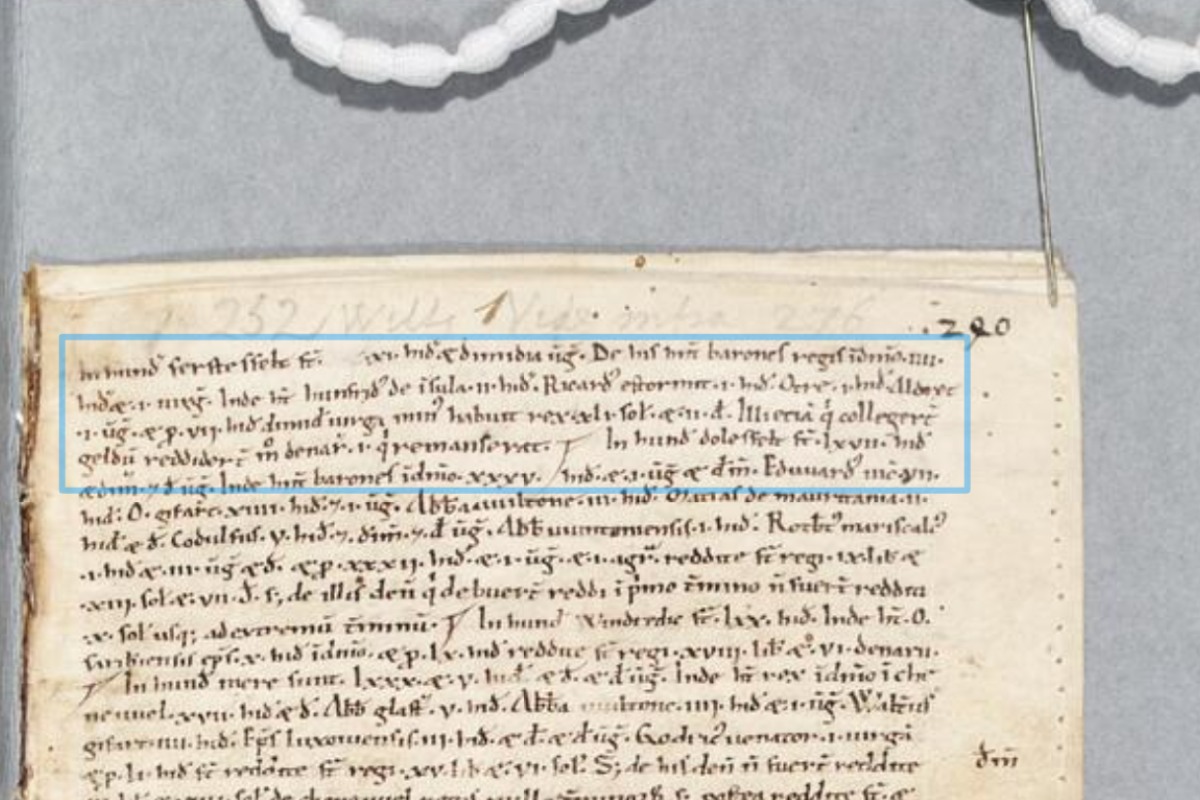 252 Wilts Vide infra 276
290
In hund̄ ferstesfelt st̄. xi. hid̄ & dimidia ūg̃. De his hn̄t barones regis ī dn̄io. iiii.
hid̄ & .i. uirg̃. Inde ht̄ hunfrid' de īsula .ii. hid̄. Ricard' estormit .i. hid̄. Otre .i. hid̄ Aldret
.i. ūg̃. & p̄. vii. hid̄ dimid̄ uirg̃ min' habuit rex. xli. sol̄. & .ii. d̄. Illi etiā q̄ collegert̄
geldū reddidert̄ m̊ denar̄. i. q̄ remanserat. In hund̄ dolesfelt st̄. lxvii. hid̄
& dim̄. ⁊ d̄ ūg̃. Inde hn̄t barones ī dn̄io. xxxv. hid̄. & .i. ūg̃ & dim̄. Eduuard' uic̄ .vii.
hid̄. O. gifart̄. xiiii. hid̄. ⁊ .i. ūg̃. Abb̄a wiltone. iii. hid̄. Macial de mauritania .ii.
hid̄ & d̄. Codulfus. v. hid̄. ⁊. dim̄. ⁊ d̄ ūg̃. Abb̄ wintoniensis .i. hid̄. Rotb̄t' mariscal'
.i. hid̄ & .iii. ūg̃ & d̄. & p̄. xxxii. hid̄. & .i. ūg̃. & .i. agr̄. reddite st̄ regi. ix. lib̄ &
.xiii. sol̄ &. vii. d̄. S; de illis den̄ q̄ debuert̄ reddi ī p̄mo t̄mino n̄ fuert̄ reddita
.x. sol̄ usq; ad extremū t̄minū. In hund̄ Windredic st̄. lxx. hid̄. Inde ht̄. O.
sarb̄iensis ep̄s. x. hid̄ ī dn̄io. & p̄. lx. hid̄ reddite st̄ regi. xviii. lib̄ &. vi. denarii.
In hund̄ mere sunt. lxxx. &. v. hid̄ & d̄. & d̄ ūg̃. Inde ht̄ rex ī dn̄io ī che
neuuel. xvii. hid̄ & d̄. Abb̄ glast̄. v. hid̄. Abb̄a wiltone. iiii. hid̄ & .i. ūg̃. Walt̄us
gifart. iiii. hid̄. Ep̄s luxouiensis. iii. hid̄. & d̄. & d̄ ūg̃. Godric' uenator .i. uirgā
& p̄. li. hid̄ st̄ reddite st̄ regi. xv. lib̄ &. vi. sol̄. S; de his den̄ n̄ fuert̄ reddite
dim̄